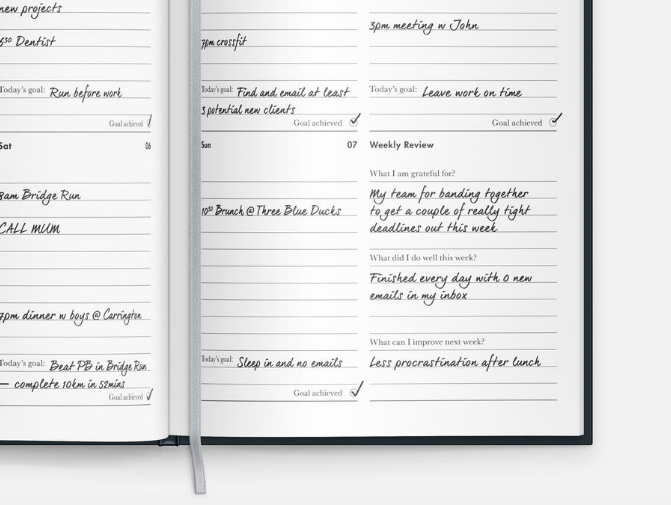 new projects
6³⁰ Dentist
Today's goal: Run before work
Goal achieved
Sat 06
8am Bridge Run
CALL MUM
7pm dinner w boys @ Carrington
Today's goal: Beat PB in Bridge Run
— complete 10km in 52mins
Goal achieved
7pm crossfit
Today's goal: Find and email at least
3 potential new clients
Goal achieved
Sun 07
10³⁰ Brunch @ Three Blue Ducks
Today's goal: Sleep in and no emails
Goal achieved
3pm meeting w John
Today's goal: Leave work on time
Goal achieved
Weekly Review
What I am grateful for?
My team for banding together
to get a couple of really tight
deadlines out this week
What did I do well this week?
Finished every day with 0 new
emails in my inbox
What can I improve next week?
Less procrastination after lunch